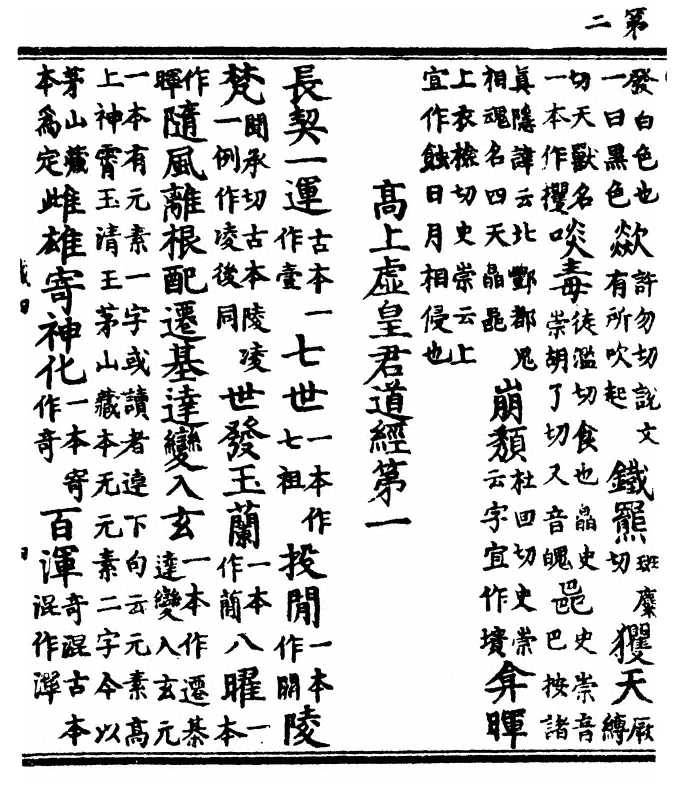 第二
發白色也一曰黑色歘許勿切說文有所吹起鐵羆班糜切玃天厥縛
切天獸名一本作攫啖毒徒濫切食也皛史崇胡了切又音魄皅史崇音巴按諸
真隱諱云北酆都鬼相魂名四天皛皅崩頽杜回切史崇云字宜作墳弇暉
上衣檢切史崇云上宜作蝕日月相侵也
高上虛皇君道經第一
長契一運古本一作壹七世一本作七祖投閒一本作閞陵
梵聞承切古本陵凌一例作凌後同世發玉蘭一本作蕳八曜一本
作暉隨風離根配遷基達變入玄一本作遷基達變入玄元
一本有元素一字或讀者連下句云元素高上神霄玉清王茅山藏本无元素二字今以
茅山藏本為定雌雄寄神化一本寄作奇百渾奇混古本混作渾